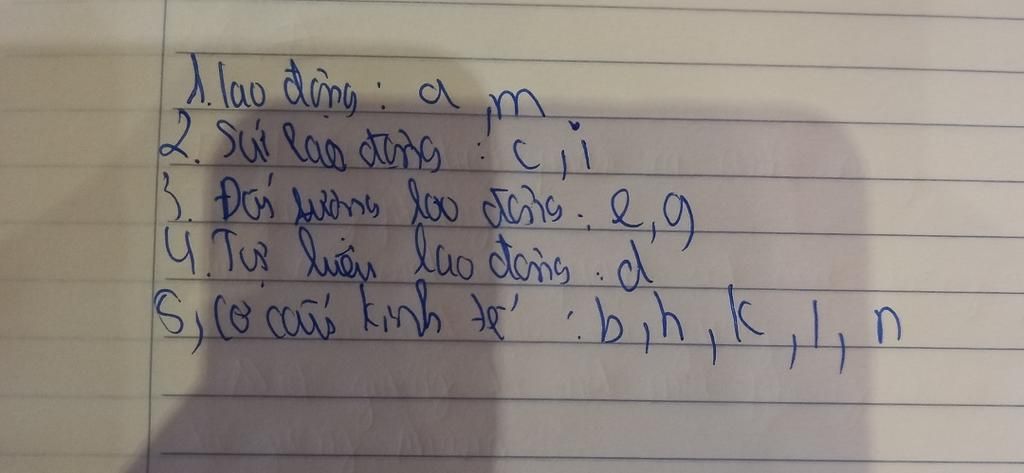 1. lao động : a, m
2. Sức lao động : c, i
3. Đối tượng lao động : e, g
4. Tư liệu lao động : d
5, Cơ cấu kinh tế : b, h, k, l, n